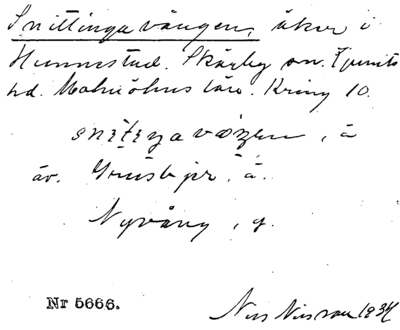 Snittingavången, åker i
Hunnestad. Skårby sn. Ljunits
hd. Malmöhus län. Kring 10.
snit̨iŋavǫŋen, å
äv. å.
Nyvång, g.
Nr 5666.
Nils Nilsson 1934